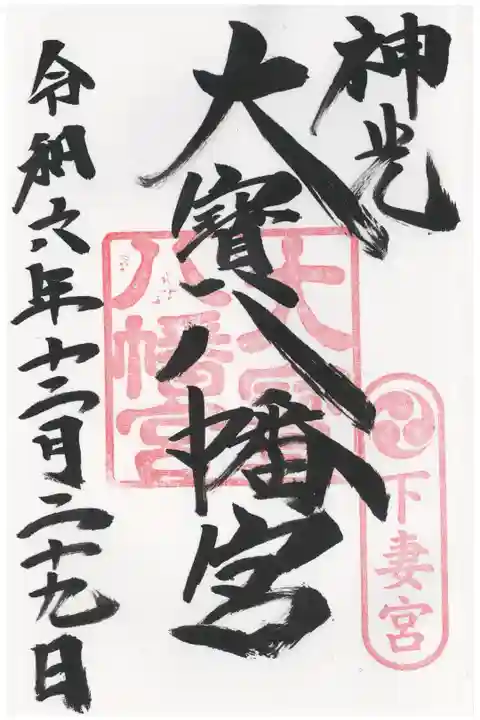 神光
大寶八幡宮
令和六年十二月二十九日
大寶八幡宮
下妻宮